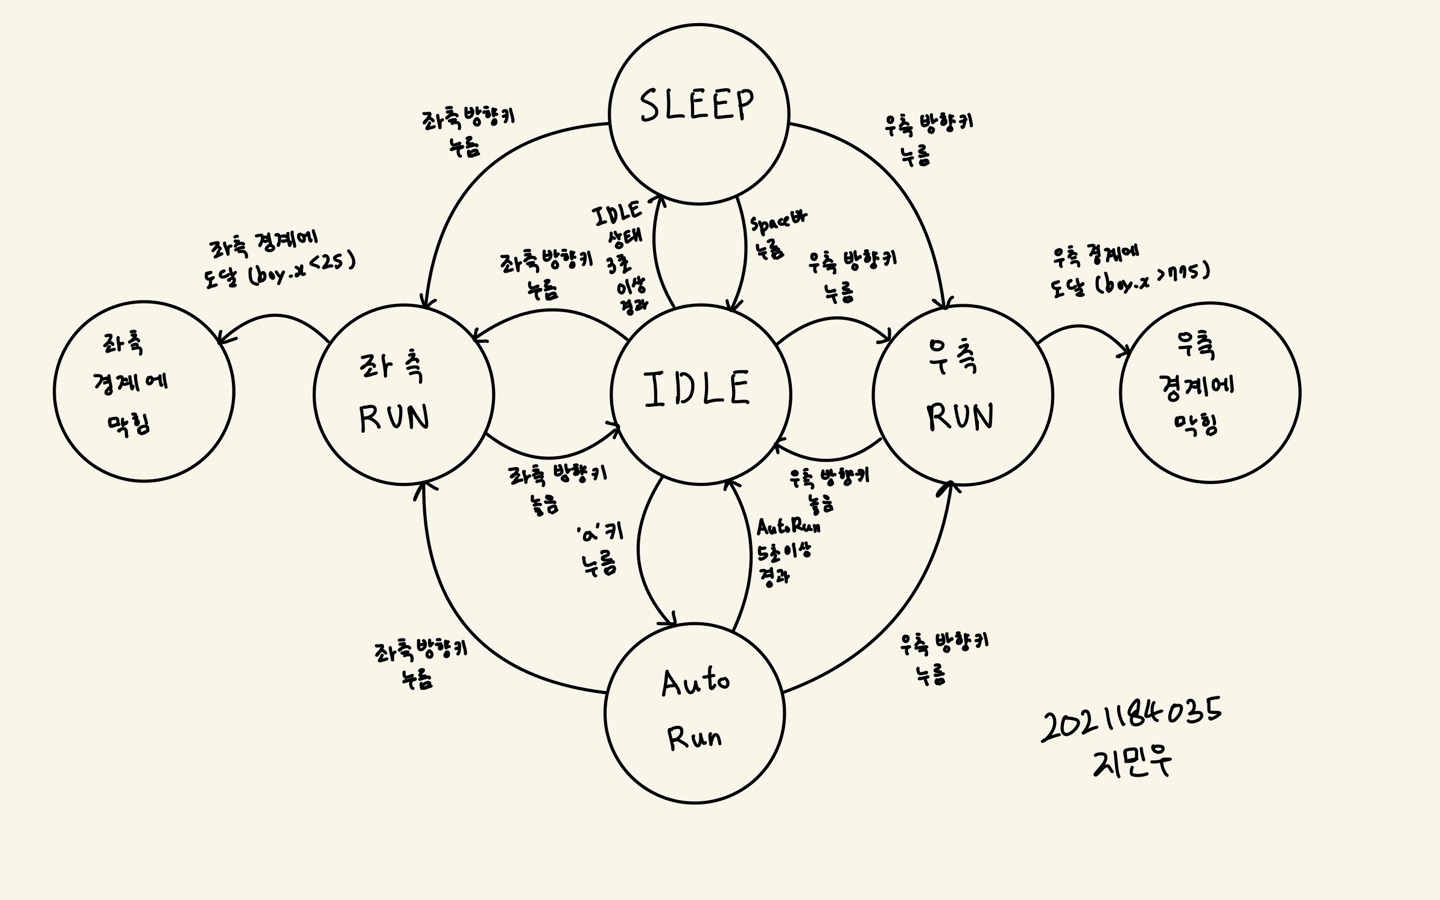 SLEEP
좌측 방향키
누름
우측 방향키
누름
IDLE
상태
3초
이상
경과
Space바
누름
좌측 경계에
도달 (boy.x <25)
좌측 방향키
누름
우측 방향키
누름
우측 경계에
도달 (boy.x >775)
좌측
경계에
막힘
좌측
RUN
IDLE
우측
RUN
우측
경계에
막힘
좌측 방향키
놓음
우측 방향키
놓음
'a'키
누름
AutoRun
5초이상
경과
좌측 방향키
누름
우측 방향키
누름
Auto
Run
2021184035
지민우